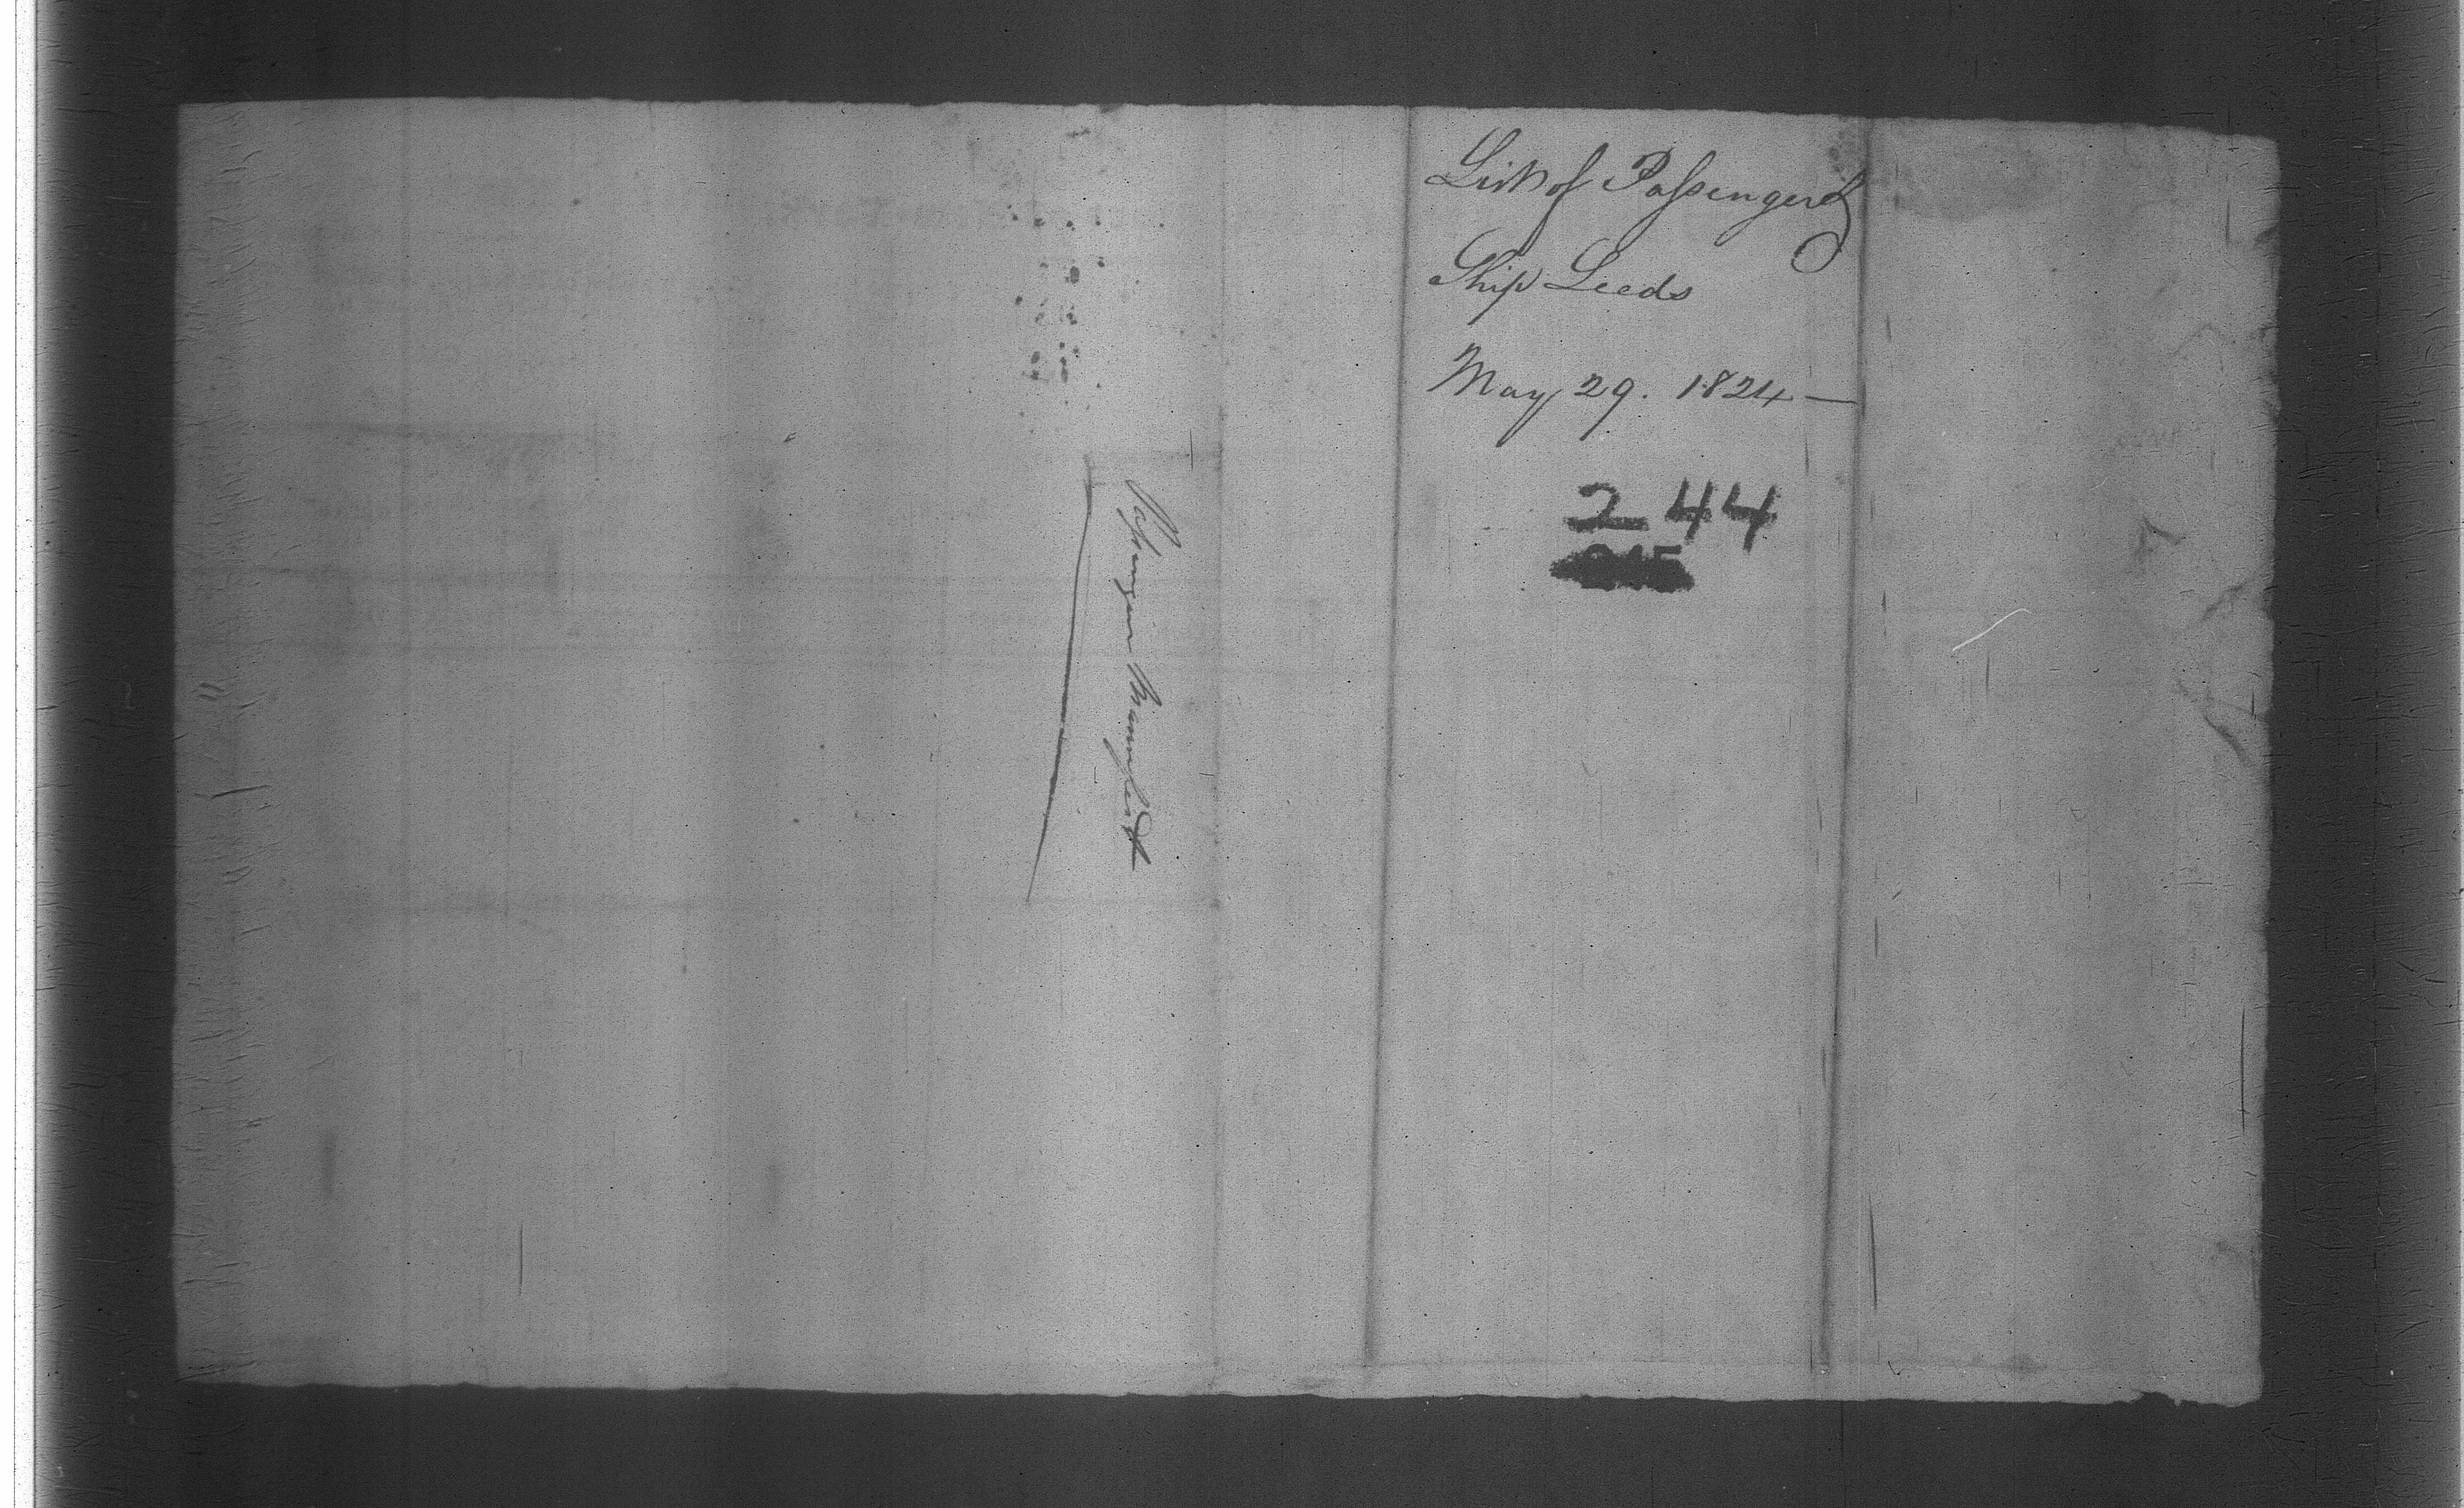 List of Passengers
Ship Leeds
May 29. 1824 —
244
Passenger Manifest